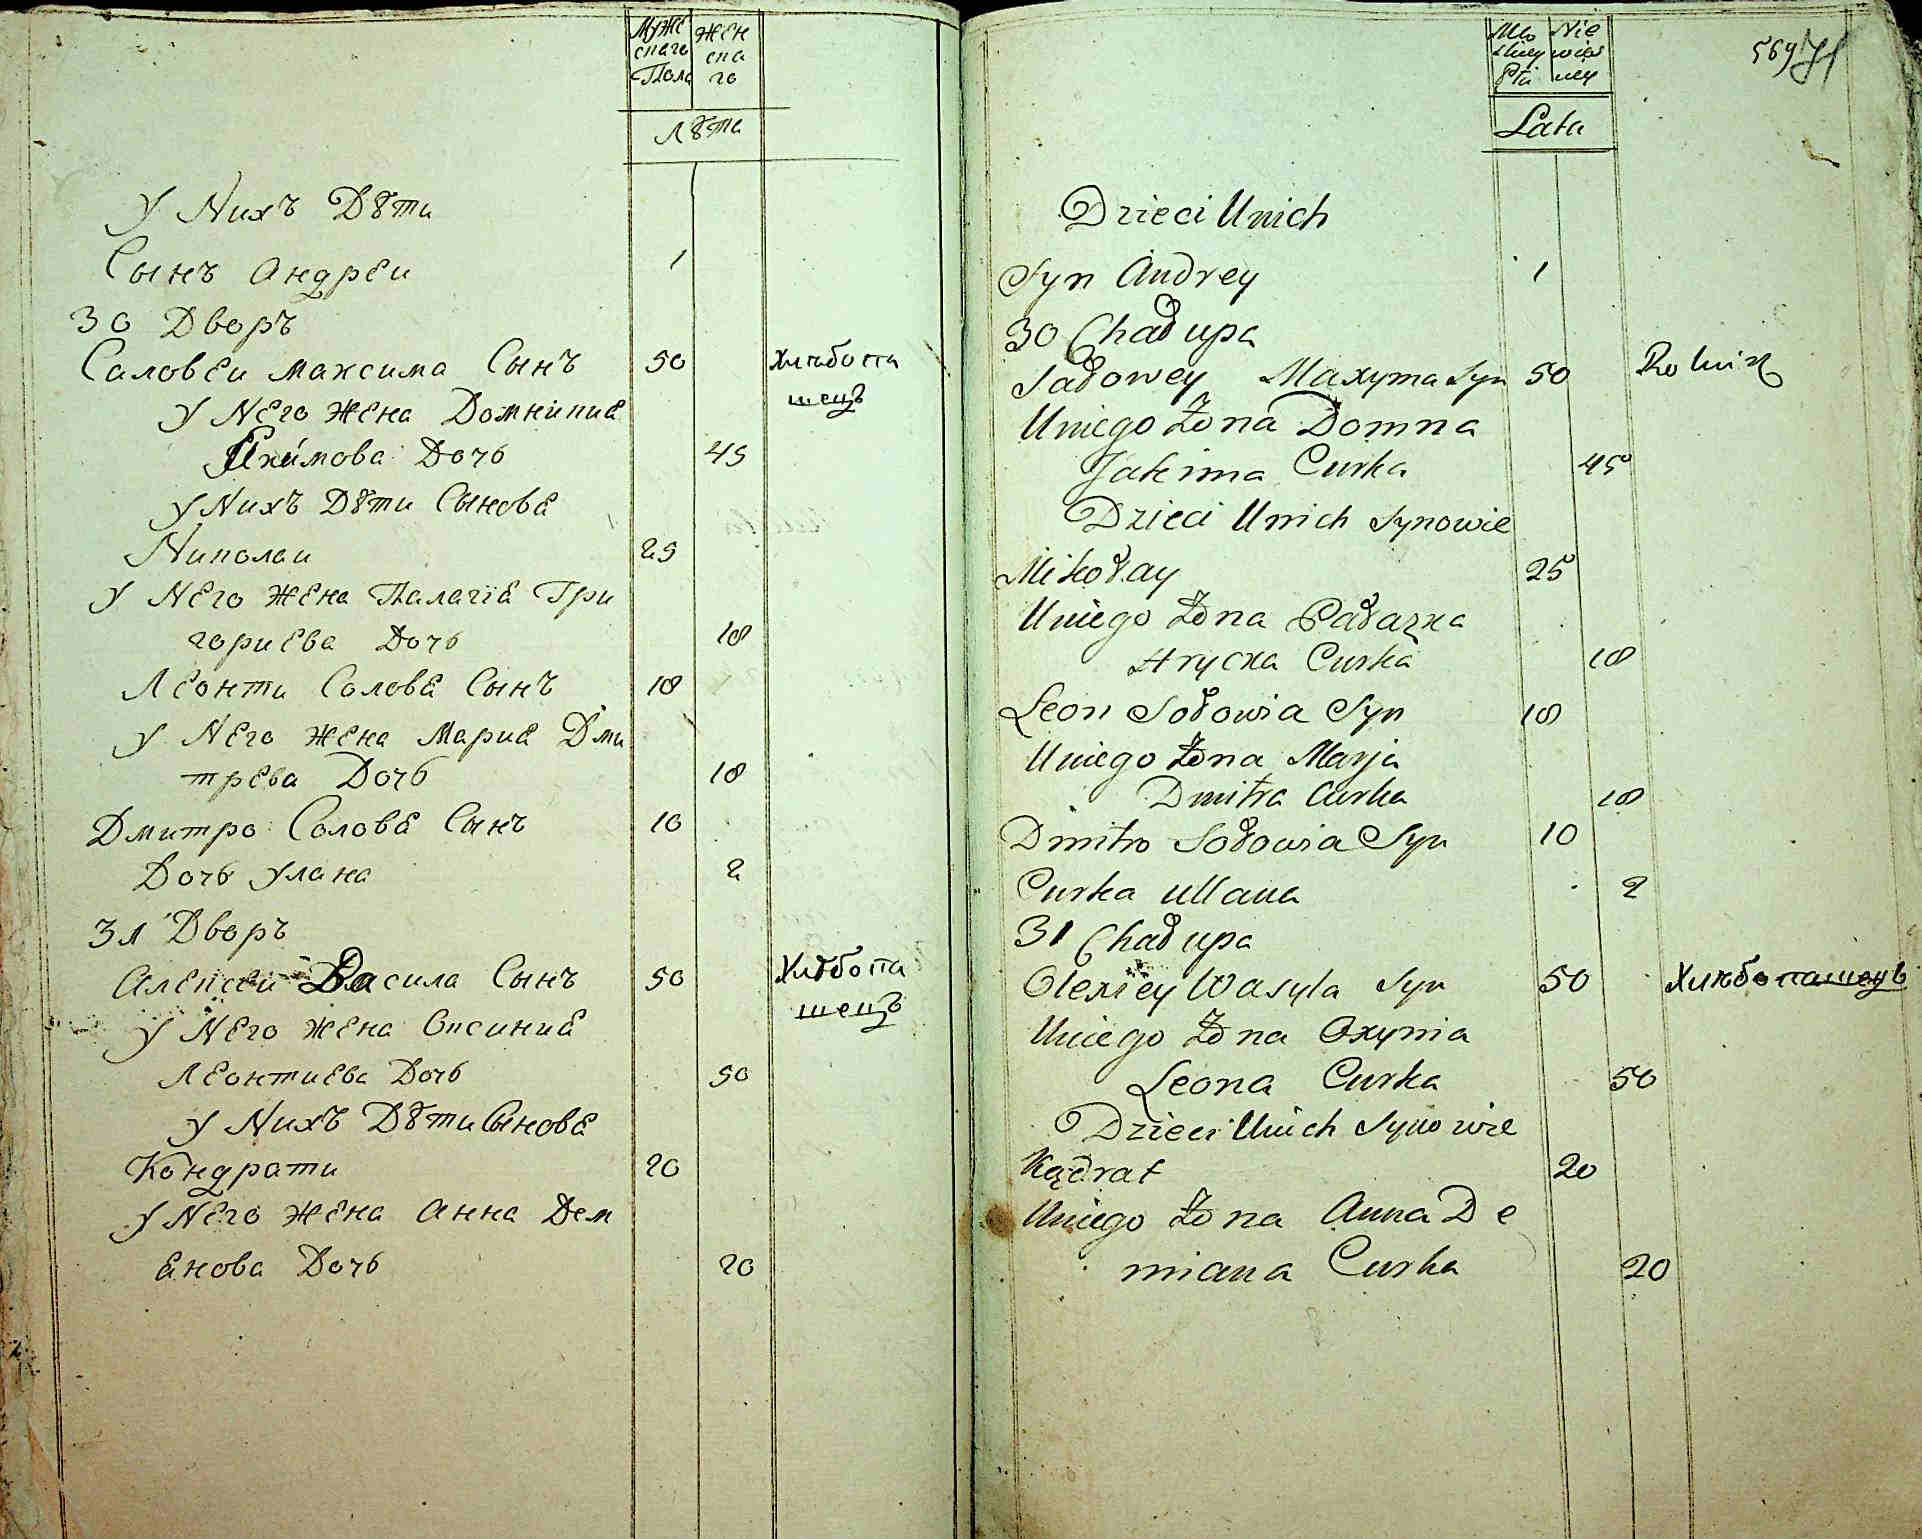 Муже
скаго
Пола
Жен
ска
го
Лѣта
У Нихъ Дѣти
Сынъ Андреи 1
30 Дворъ
Саловеи Максима Сынъ 50 Хлѣбопа
шецъ
У Него Жена Домникиа
Якимова Дочь 45
У Нихъ Дѣти Сынова
Николаи 25
У Него Жена Палагіа Гри
гориева Дочь 18
Леонти Солова Сынъ 18
У Него Жена Мариа Дми
трева Дочь 18
Дмитро Солова Сынъ 10
Дочь Улана 2
31 Дворъ
Алексеи Васила Сынъ 50 Хлѣбопа
шецъ
У Него Жена Оксиниа
Леонтиева Дочь 50
У Нихъ Дѣти Сынова
Кондрати 20
У Него Жена Анна Дем
анова Дочь 20
569 71
Płci
Lata
Dzieci Unich
Syn Andrey 1
30 Chałupa
Sałowey Maxyma Syn 50 Rolnik
Uniego Żona Domna
Jakima Curka 45
Dzieci Unich Synowie
Mikołay 25
Uniego Żona Pałazka
Hrycka Curka 18
Leon Sołowia Syn 18
Uniego Żona Marja
Dmitra Curka 18
Dmitro Sołowia Syn 10
Curka Ullana 2
31 Chałupa
Olexiey Wasyla Syn 50 Хлѣбопашецъ
Uniego Żona Oxynia
Leona Curka 50
Dzieci Unich Synowie
Kądrat 20
Uniego Żona Anna De
miana Curka 20